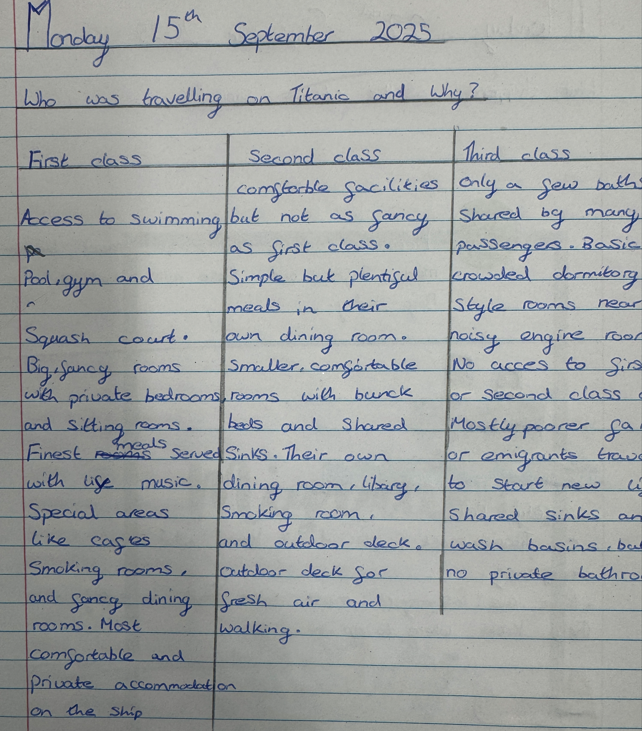 Monday 15th September 2025
Who was travelling on Titanic and Why?
First class
Access to swimming
Pool, gym and
Squash court.
Big, fancy rooms
with private bedrooms
and sitting rooms.
Finest meals served
with life music.
Special areas
like cafes
Smoking rooms,
and fancy dining
rooms. Most
comfortable and
private accommodation
on the ship
Second class
comftorble facilities
but not as fancy
as first class.
Simple but plentiful
meals in their
own dining room.
Smaller, comfortable
rooms with bunck
beds and shared
Sinks. Their own
dining room, libary,
Smoking room,
and outdoor deck.
outdoor deck for
fresh air and
walking.
Third class
Only a few baths
Shared by many
passengers. Basic
crowded dormitory
Style rooms near
noisy engine roo
No acces to firs
or second class
Mostly poorer fa
or emigrants trav
to start new li
Shared sinks an
wash basins, bu
no private bathro